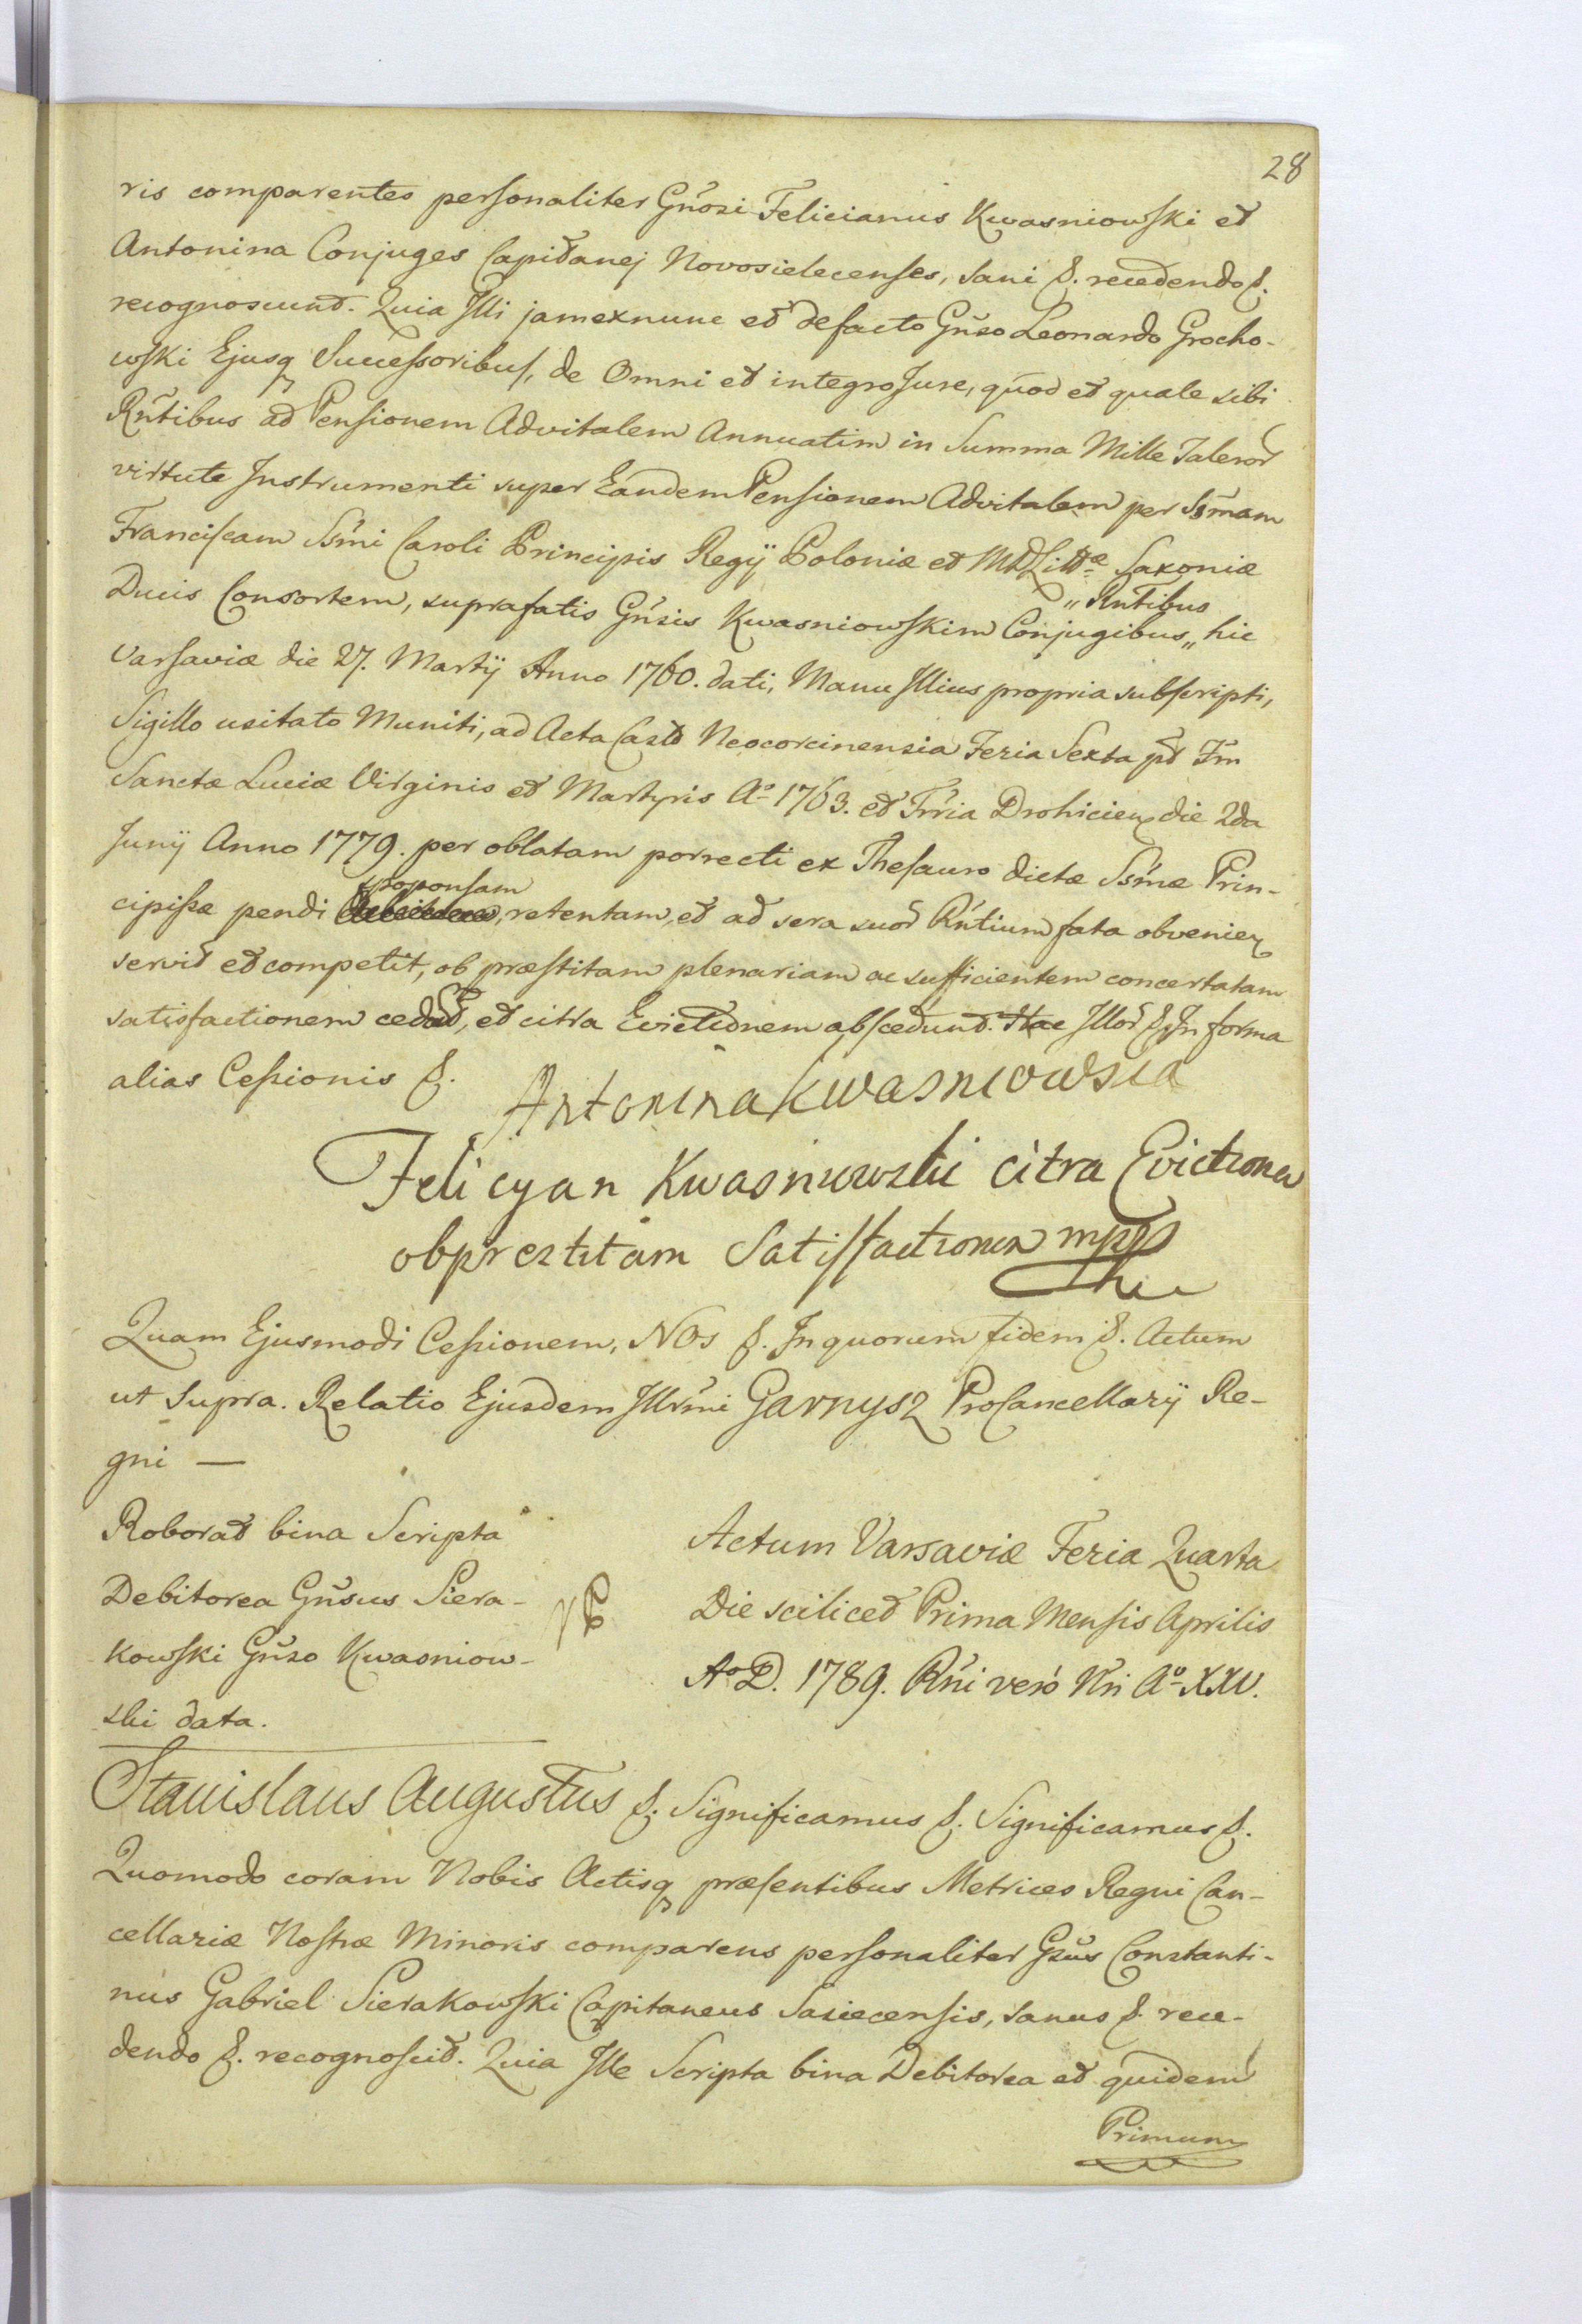 28
ris comparentes personaliter Gnosi Felicianus Kwasniowski et
Antonina Conjuges Capitanej Novosielecenses, sani &. recedendo &.
recognoscunt. Quia Illi jam exnunc et defacto Gnso Leonardo Grocho-
wski Ejusq Successoribus, de Omni et integro Jure, quod et quale sibi
Rntibus ad Pensionem Advitalem Annuatim in Summa Mille Taleror
virtute Instrumenti super Eandem Pensionem Advitalem per Ssmam
Franciscam Ssmi Caroli Principis Regij Poloniæ et MDLittæ Saxoniæ
„Rntibus
Ducis Consortem, suprafatis Gnsis Kwasniowskim Conjugibus„ hic
Varsaviæ die 27. Martij Anno 1760. dati, Manu Illius propria subscripti,
Sigillo usitato Muniti, ad Acta Castr Neocorcinensia Feria Sexta pt Fm
Sanctæ Luciæ Virginis et Martyris Aº 1763. et Trria Drohicien die 2da
Junij Anno 1779. per oblatam porrecti ex Thesauro dictæ Ssmæ Prin-
sponsam
cipissæ pendi, retentam, et ad sera suor Rntium fata obvenien
servit et competit, ob præstitam plenariam ac sufficientem concertatam
satisfactionem cedunt, et citra Evictionem abscedunt. Hac Illor & In forma
alias Cessionis &.
Antonina Kwasniowska
Felicyan Kwasniowski citra Evictionem
ob prestitam Satisfactionem mpp
Quam Ejusmodi Cessionem, NOs &. In quorum fidem &. Actum
ut Supra. Relatio Ejusdem Illrmi Garnysz ProCancellarij Re-
gni —
Roborat bina Scripta
Debitorea Gnsus Siera-
kowski Gnso Kwasniow-
ski data.
Actum Varsaviæ Feria Quarta
Die scilicet Prima Mensis Aprilis
AºD. 1789. Rni veró Nri Aº XXV.
Stanislaus Augustus &. Significamus &. Significamus &.
Quomodo coram Nobis Actisq præsentibus Metrices Regni Can-
cellariæ Nostræ Minoris comparens personaliter Gsus Constanti-
nus Gabriel Sierakowski Capitaneus Sasiecensis, sanus &. rece-
dendo &. recognoscit. Quia Ille Scripta bina Debitorea et quidem
Primum